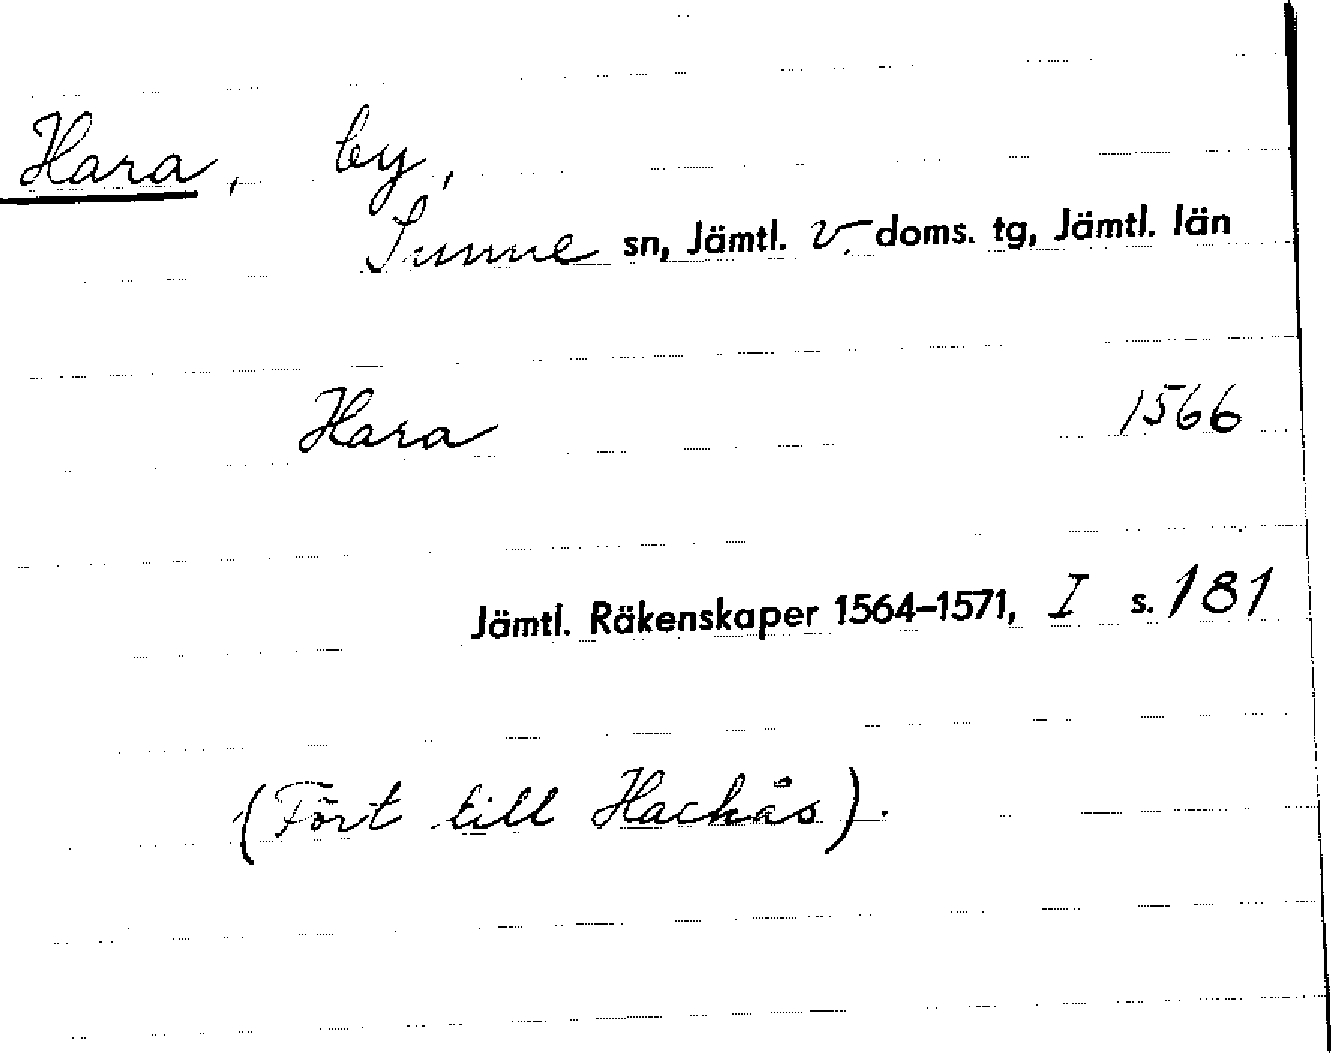 Hara, by,
Sunne sn, Jämtl. v. doms. tg, Jämtl. län
Hara 1566
Jämtl. Räkenskaper 1564–1571, I s. 181
(Fört till Hackås).